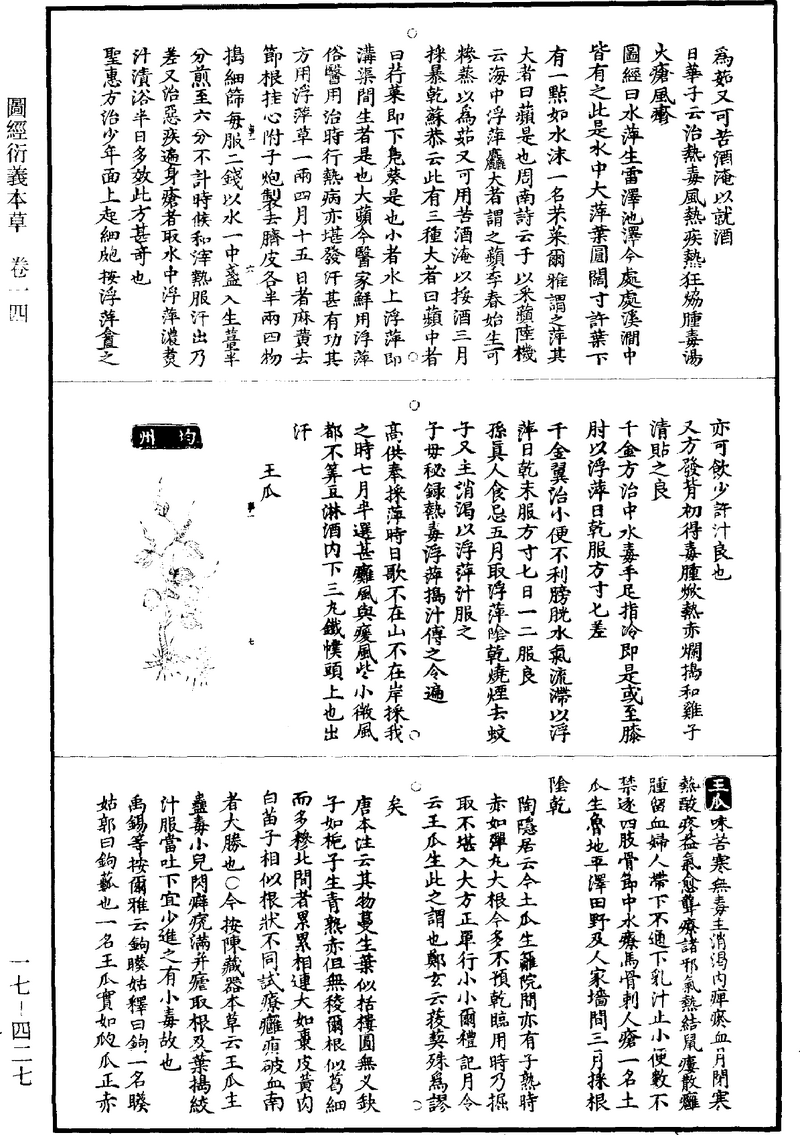 圖經衍義本草　卷一四
一七—四二七
為茹又可苦酒淹以就酒
日華子云治熱毒風熱疾熱狂㷔腫毒湯
火瘡風𤺋
圖經曰水萍生雷澤池澤今處處溪澗中
皆有之此是水中大萍葉圓闊寸許葉下
有一點如水沫一名芣菜爾雅謂之萍其
大者曰蘋是也周南詩云于以采蘋陸機
云海中浮萍麤大者謂之蘋季春始生可
糝蒸以為茹又可用苦酒淹以按酒三月
採暴乾蘇恭云此有三種大者曰蘋中者
曰荇菜即下鳧葵是也小者水上浮萍即
溝渠間生者是也大蘋今醫家鮮用浮萍
俗醫用治時行熱病亦堪發汗甚有功其
方用浮萍草一兩四月十五日者麻黃去
節根桂心附子炮製去臍皮各半兩四物
搗細篩每服二錢以水一中盞入生薑半
分煎至六分不計時候和滓熱服汗出乃
差又治惡疾遍身瘡者取水中浮萍濃煑
汁漬浴半日多效此方甚奇也
聖惠方治少年面上起細皰按浮萍盦之
亦可飲少許汁良也
又方發背初得毒腫焮熱赤爛搗和雞子
清貼之良
千金方治中水毒手足指冷即是或至膝
肘以浮萍日乾服方寸匕差
千金翼治小便不利膀胱水氣流滯以浮
萍日乾末服方寸匕日一二服良
孫真人食忌五月取浮萍陰乾燒煙去蚊
子又主消渴以浮萍汁服之
子母秘録熱毒浮萍搗汁傅之令遍
高供奉採萍時日歌不在山不在岸採我
之時七月半選甚癱風與瘓風些小微風
都不筭豆淋酒內下三丸鐵幞頭上也出
汗
王瓜
均州
王瓜味苦寒無毒主消渴內痺瘀血月閉寒
熱酸疼益氣愈聾療諸邪氣熱結鼠瘻散癰
腫留血婦人帶下不通下乳汁止小便數不
禁逐四肢骨節中水療馬骨刺人瘡一名土
瓜生魯地平澤田野及人家墻間三月採根
陰乾
陶隱居云今土瓜生籬院間亦有子熟時
赤如彈丸大根今多不預乾臨用時乃掘
取不堪入大方正單行小小爾禮記月令
云王瓜生此之謂也鄭玄云菝葜殊為謬
矣
唐本注云其物蔓生葉似栝樓圓無叉缺
子如梔子生青熟赤但無稜爾根似葛細
而多糝北間者累累相連大如棗皮黃肉
白苗子相似根狀不同試療癰疽破血南
者大勝也○今按陳藏器本草云王瓜主
蠱毒小兒閃癖痃滿并瘧取根及葉搗絞
汁服當吐下宜少進之有小毒故也
禹錫等按爾雅云鉤䕷姑釋曰鉤一名䕷
姑郭曰鉤𤬏也一名王瓜實如㼎瓜正赤